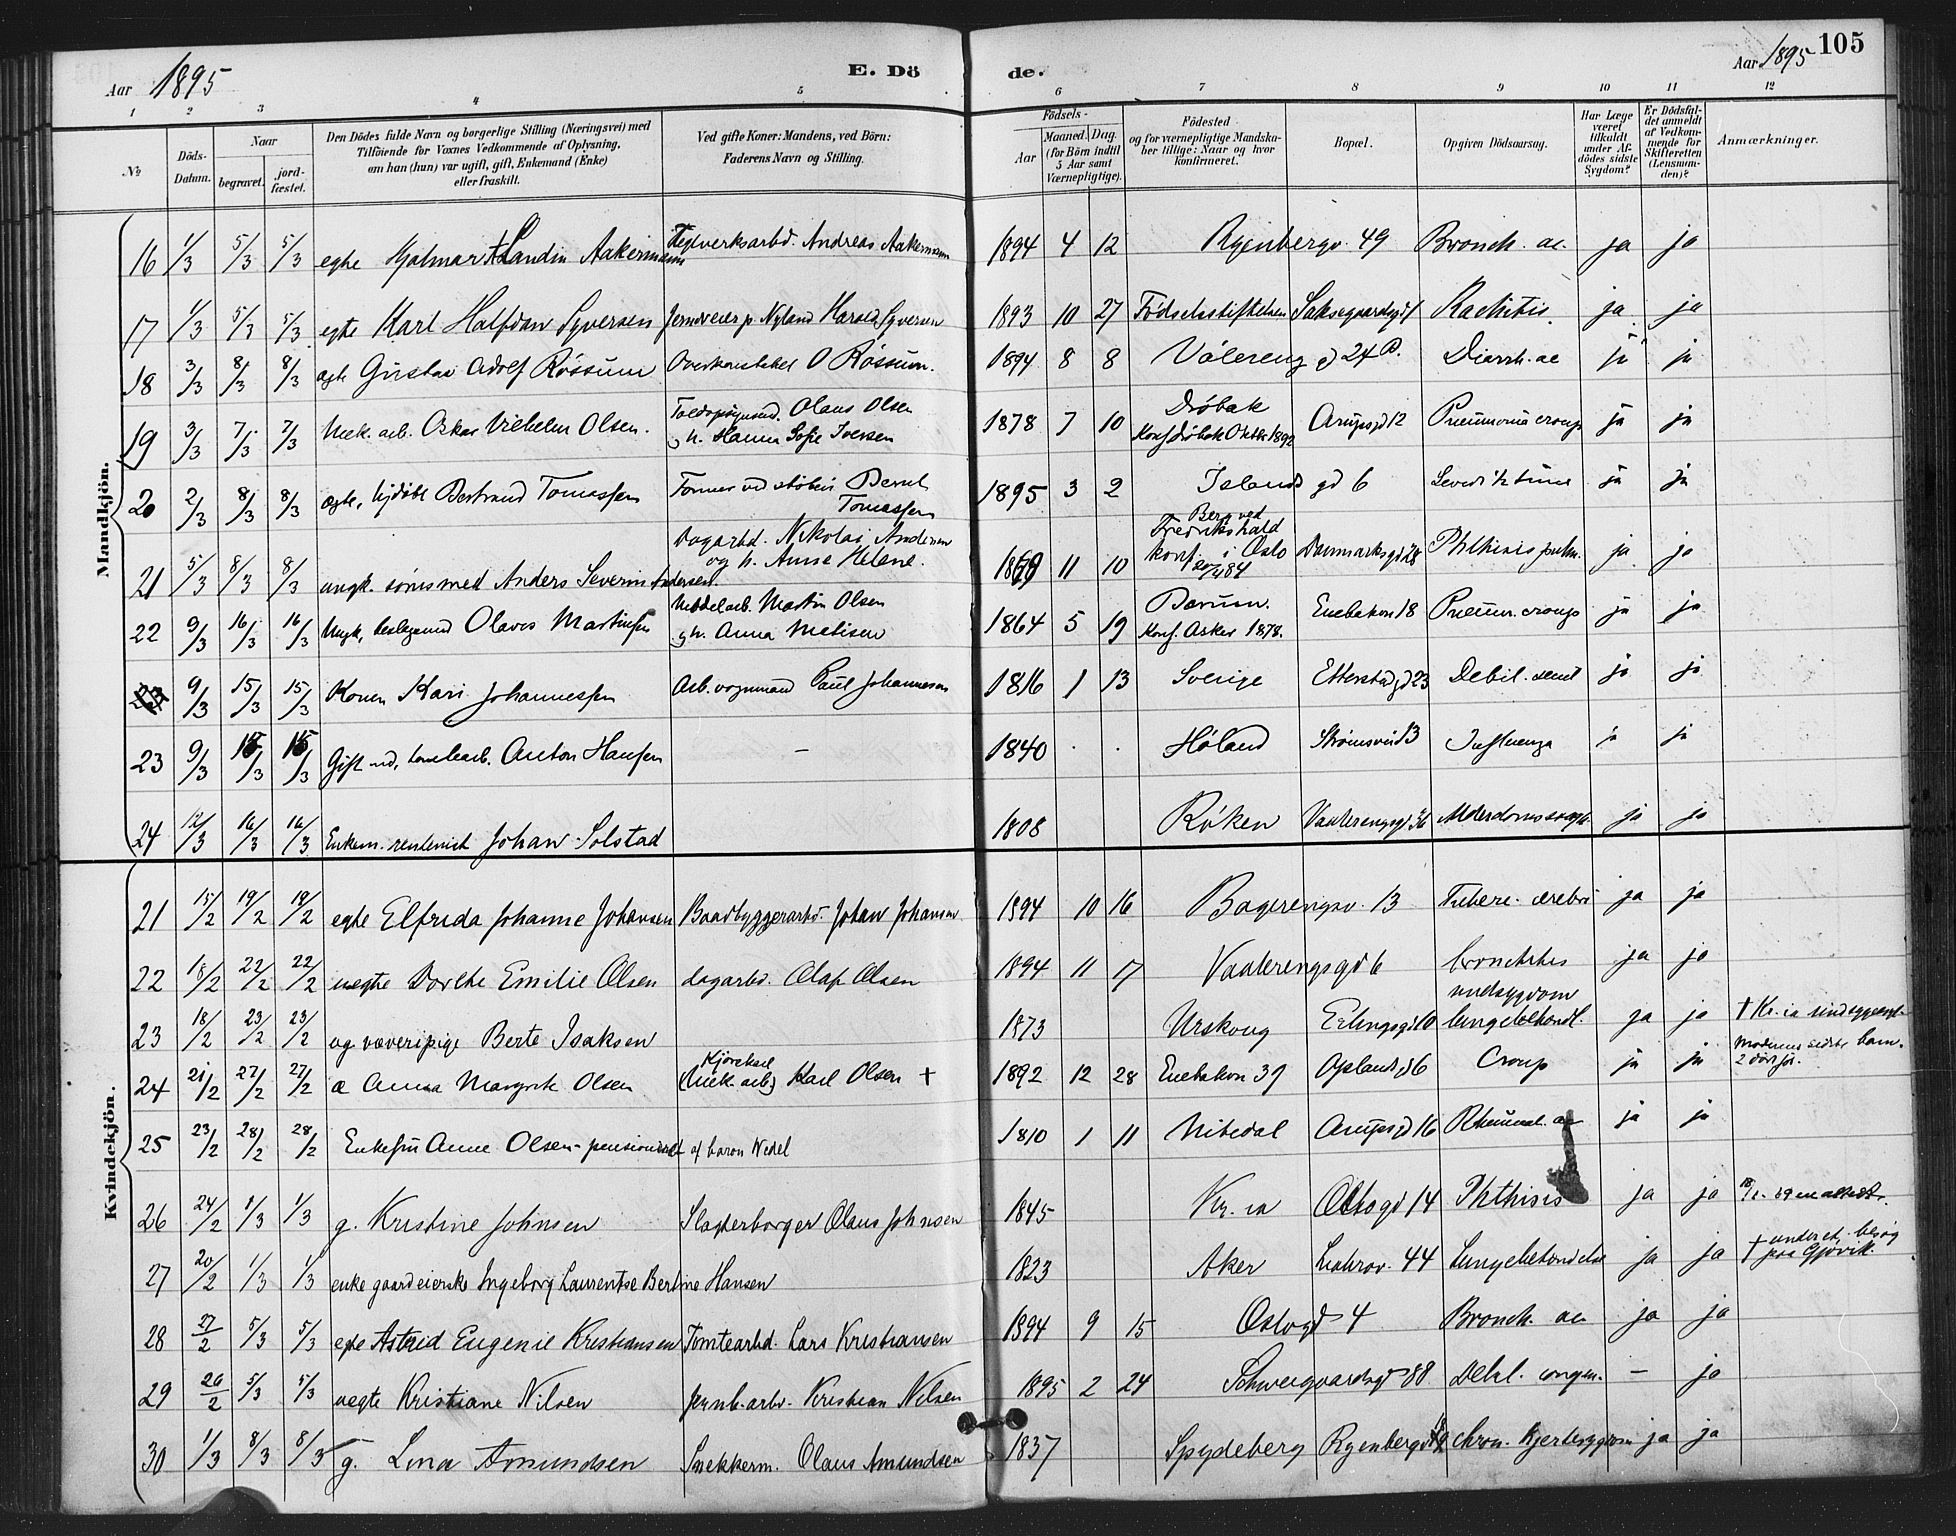 Aar 1895
E. Dö
de.
Aar 1895 105
1 2 3 4 5 6 7 8 9 10 11 12
№
Döds-Datum.
Naar begravet. jordfæstet.
Den Dödes fulde Navn og borgerlige Stilling (Næringsvei) med Tilföiende for Voxnes Vedkommende af Oplysning, om han (hun) var ugift, gift, Enkemand (Enke) eller fraskilt.
Ved gifte Koner: Mandens, ved Börn: Faderens Navn og Stilling.
Födsels- Aar Maaned. Dag. (for Börn indtil 5 Aar samt Værnepligtige).
Födested og for værnepligtige Mandskaber tillige: Naar og hvor konfirmeret.
Bopæl.
Opgiven Dödsaarsag.
Har Læge været tilkaldt under Afdödes sidste Sygdom?
Er Dödsfaldet anmeldt af Vedkommende for Skifteretten (Lensmanden)?
Anmærkninger.
Mandkjön.
16 1/3 5/3 5/3 egte Hjalmar Landin Aakermann Teglverksarbd. Andreas Aakermann 1894 4 12 Ryenbergv. 49 Bronch. ac. ja ja
17 1/3 5/3 5/3 egte Karl Halfdan Syversen Jerndreier p Nyland Harald Syversen 1893 10 27 Födselsstiftelsen Saksegaardsgd 1 Rachitis ja ja
18 3/3 8/3 8/3 ægte Gustav Adolf Róssum Overkonstabel O Róssum. 1894 8 8 Válereng gd 24 B. Diarrh. ac ja ja
19 3/3 7/3 7/3 Mek. arb. Oskar Vilhelm Olsen. Toldopsynsmd. Olaus Olsen
og h. Hanna Sofie Iversen 1878 7 10 Dróbak
Konf Dróbak Oktbr 1892 Arupsgd 12 Pneumonia croup ja ja
20 2/3 8/3 8/3 ægte, Bertrand Tomassen Former ved Bernt
Tomassen 1895 3 2 Islands gd 6 ja ja
21 5/3 8/3 8/3 ungk. Anders Severin Andersen Dagarbd. Nikolai Andersen
og h. Anne Helene. 1869 11 10 Berg ved
Fredrikshald
konf. i Oslo
84 Danmarksgd 28 Phthisis pulm. ja ja
22 9/3 16/3 16/3 Ungk, Olaves Martinsen Martin Olsen
og h. Anna Matisen 1864 5 19 Bærum.
Konf. Asker 1878. Enebakvn 18 Pneum. croup ja ja
23 9/3 15/3 15/3 Konen Kari Johannessen Arb. vognmand Paul Johannesen 1816 1 13 Sverige Etterstadgd 23 Debil. senil ja ja
23 9/3 15/3 15/3 Gift Anton Hansen – 1840 Höland Strömsvei 13 Influenza ja ja
24 12/3 16/3 16/3 Enkem. rentenist Johan Solstad 1808 Röken Vaalerengsgd 36 Alderdomssvagh. ja ja
Kvindekjön.
21 15/2 19/2 19/2 egte Elfrida Johanne Johansen Baadbyggerarbd. Johan Johansen 1894 10 16 Bagerengsv. 13 Tuberc. cerebri ja ja
22 18/2 22/2 22/2 uegte Dorthe Emilie Olsen dagarbd. Olaf Olsen 1894 11 17 Vaalerengsgd 6 bronchitis ja ja
23 18/2 23/2 23/2 ug væveripige Berte Isaksen 1873 Urskoug Erlingsgd 10 sindsygdom
lungebetændl. ja ja † Kr.ia sindssygeasyl
24 21/2 27/2 27/2 æ Anna Margrete Olsen Kjörekarl
(Mek. arb) Karl Olsen † 1892 12 28 Enebakvn 39 Oplandsgd 6 Croup ja ja Moderens sidste barn.
25 23/2 28/2 28/2 Enkefru Anne Olsen – pensioneret af baron Wedel 1810 1 11 Nitedal Arupsgd 16 Rheumat. ac ja ja
26 24/2 1/3 1/3 g. Kristine Johnsen Slagterborger Olaus Johnsen 1845 Kr.ia Oslogd 14 Phthisis ja ja
27 20/2 1/3 1/3 enke gaardeierske Ingeborg Laurentse Bertine Hansen 1823 Aker Liabrov. 44 Lungebetændelse ja ja † under et besög
paa Gjövik.
28 27/2 5/3 5/3 egte Astrid Eugenie Kristiansen Tomtearbd. Lars Kristiansen 1894 9 15 Oslogd 4 Bronch. ac ja ja
29 26/2 5/3 5/3 uegte Kristiane Nilsen jernb.arbd. Kristian Nilsen 1895 2 24 Schweigaardsgd 88 Debil. congen. – ja
30 1/3 8/3 8/3 g. Lina Amundsen Snekkerm. Olaus Amundsen 1837 Spydeberg Ryenbergv chron. Hjertesygdom ja ja